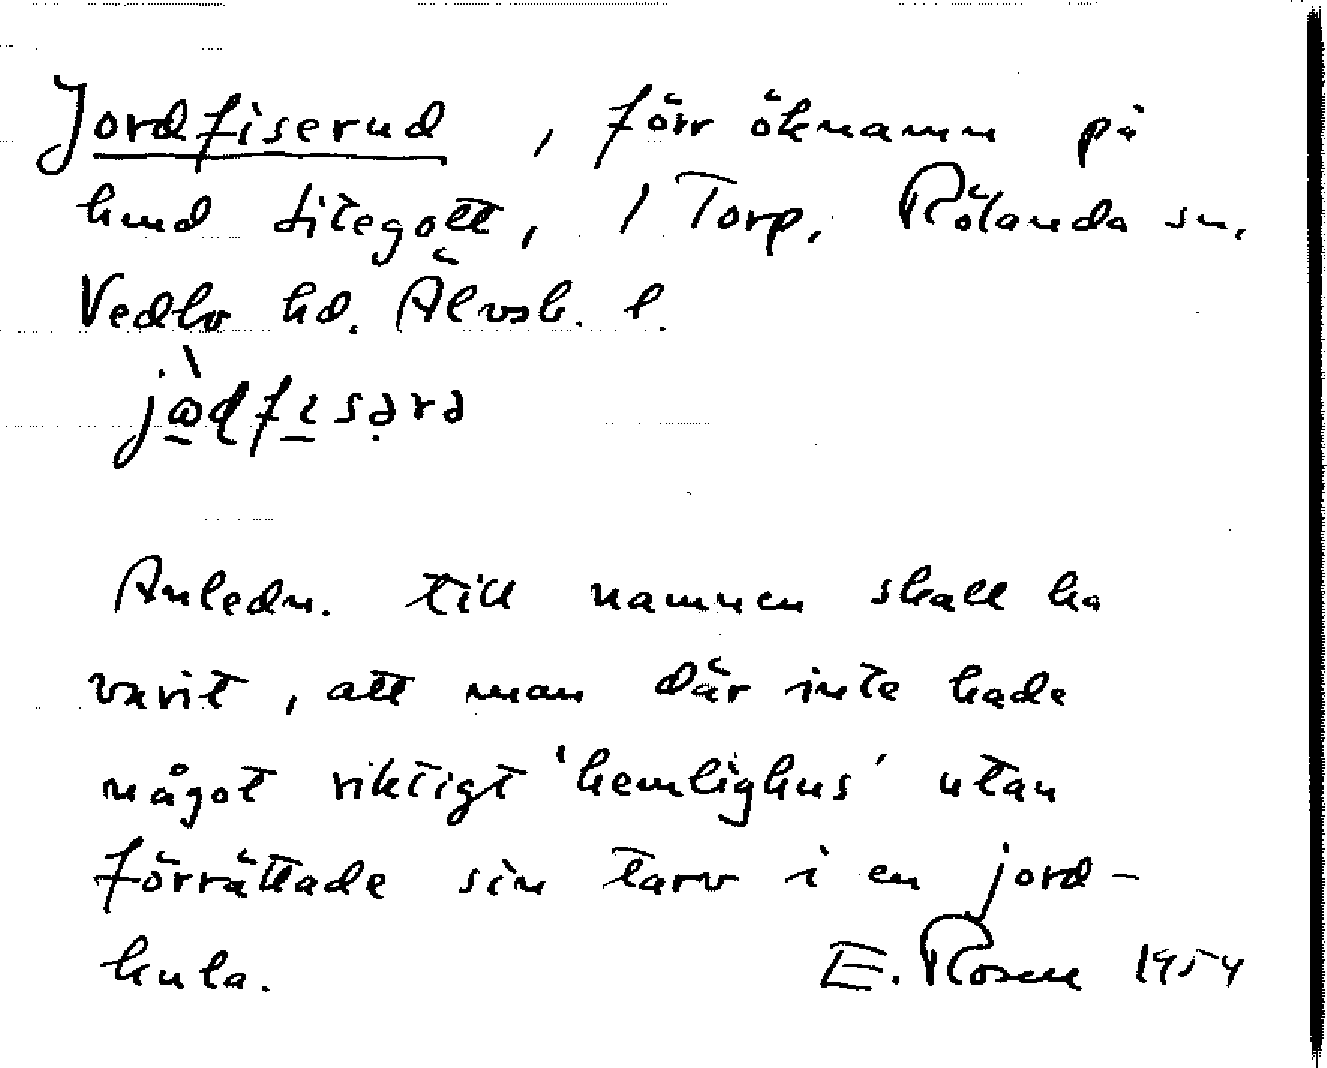 Jordfiserud, förr öknamn på
hmd Litegott, 1 Torp, Rölanda sn,
Vedbo hd. Älvsb. l.
Anledn. till namnen skall ha
varit, att man där inte hade
något riktigt 'hemlighus' utan
förrättade sin tarv i en jord-
kula. E. Rosen 1954